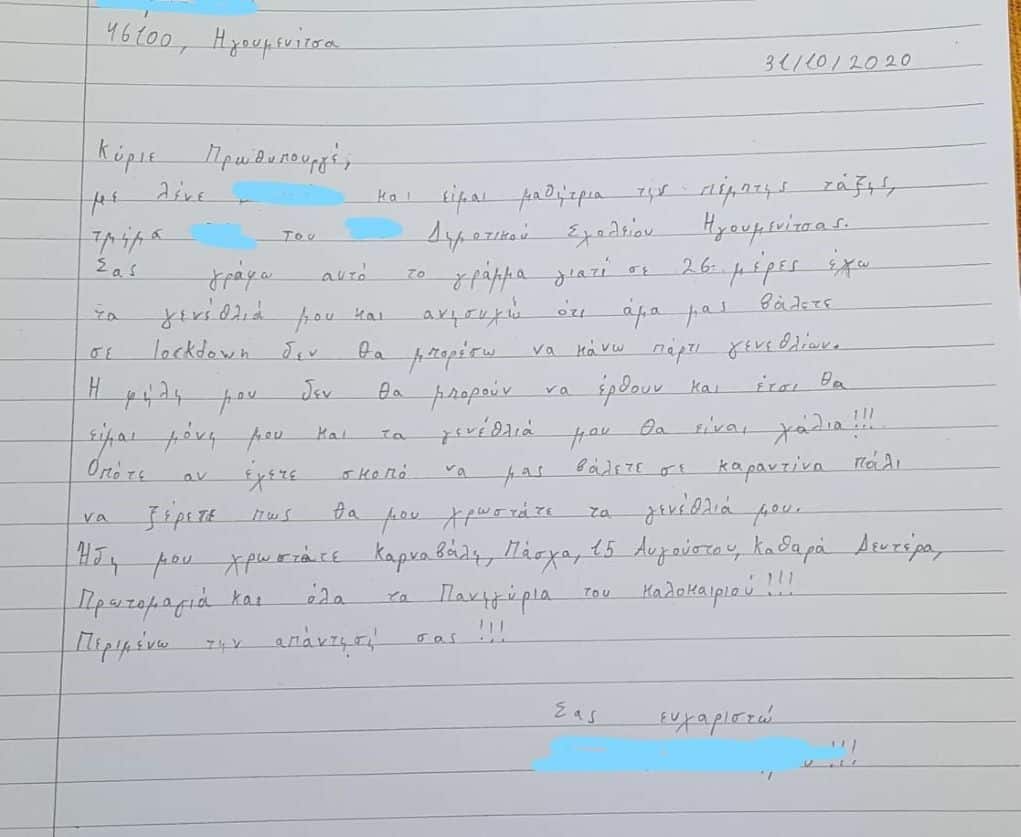 46100, Ηγουμενίτσα
31/10/2020
Κύριε Πρωθυπουργέ,
με λένε και είμαι μαθήτρια της πέμπτης τάξης,
τμήμα του Δημοτικού Σχολείου Ηγουμενίτσας.
Σας γράφω αυτό το γράμμα γιατί σε 26 μέρες έχω
τα γενέθλιά μου και ανησυχώ ότι άμα μας βάλετε
σε lockdown δεν θα μπορέσω να κάνω πάρτι γενεθλίων.
Η φήλη μου δεν θα μπορούν να έρθουν και έτσι θα
είμαι μόνη μου και τα γενέθλιά μου θα είναι χάλια!!!
Οπότε αν έχετε σκοπό να μας βάλετε σε καραντίνα πάλι
να ξέρετε πως θα μου χρωστάτε τα γενέθλιά μου.
Ήδη μου χρωστάτε Καρναβάλη, Πάσχα, 15 Αυγούστου, Καθαρά Δευτέρα,
Πρωτομαγιά και όλα τα Πανηγύρια του καλοκαιριού!!!
Περιμένω την απάντησή σας!!!
Σας ευχαριστώ
!!!